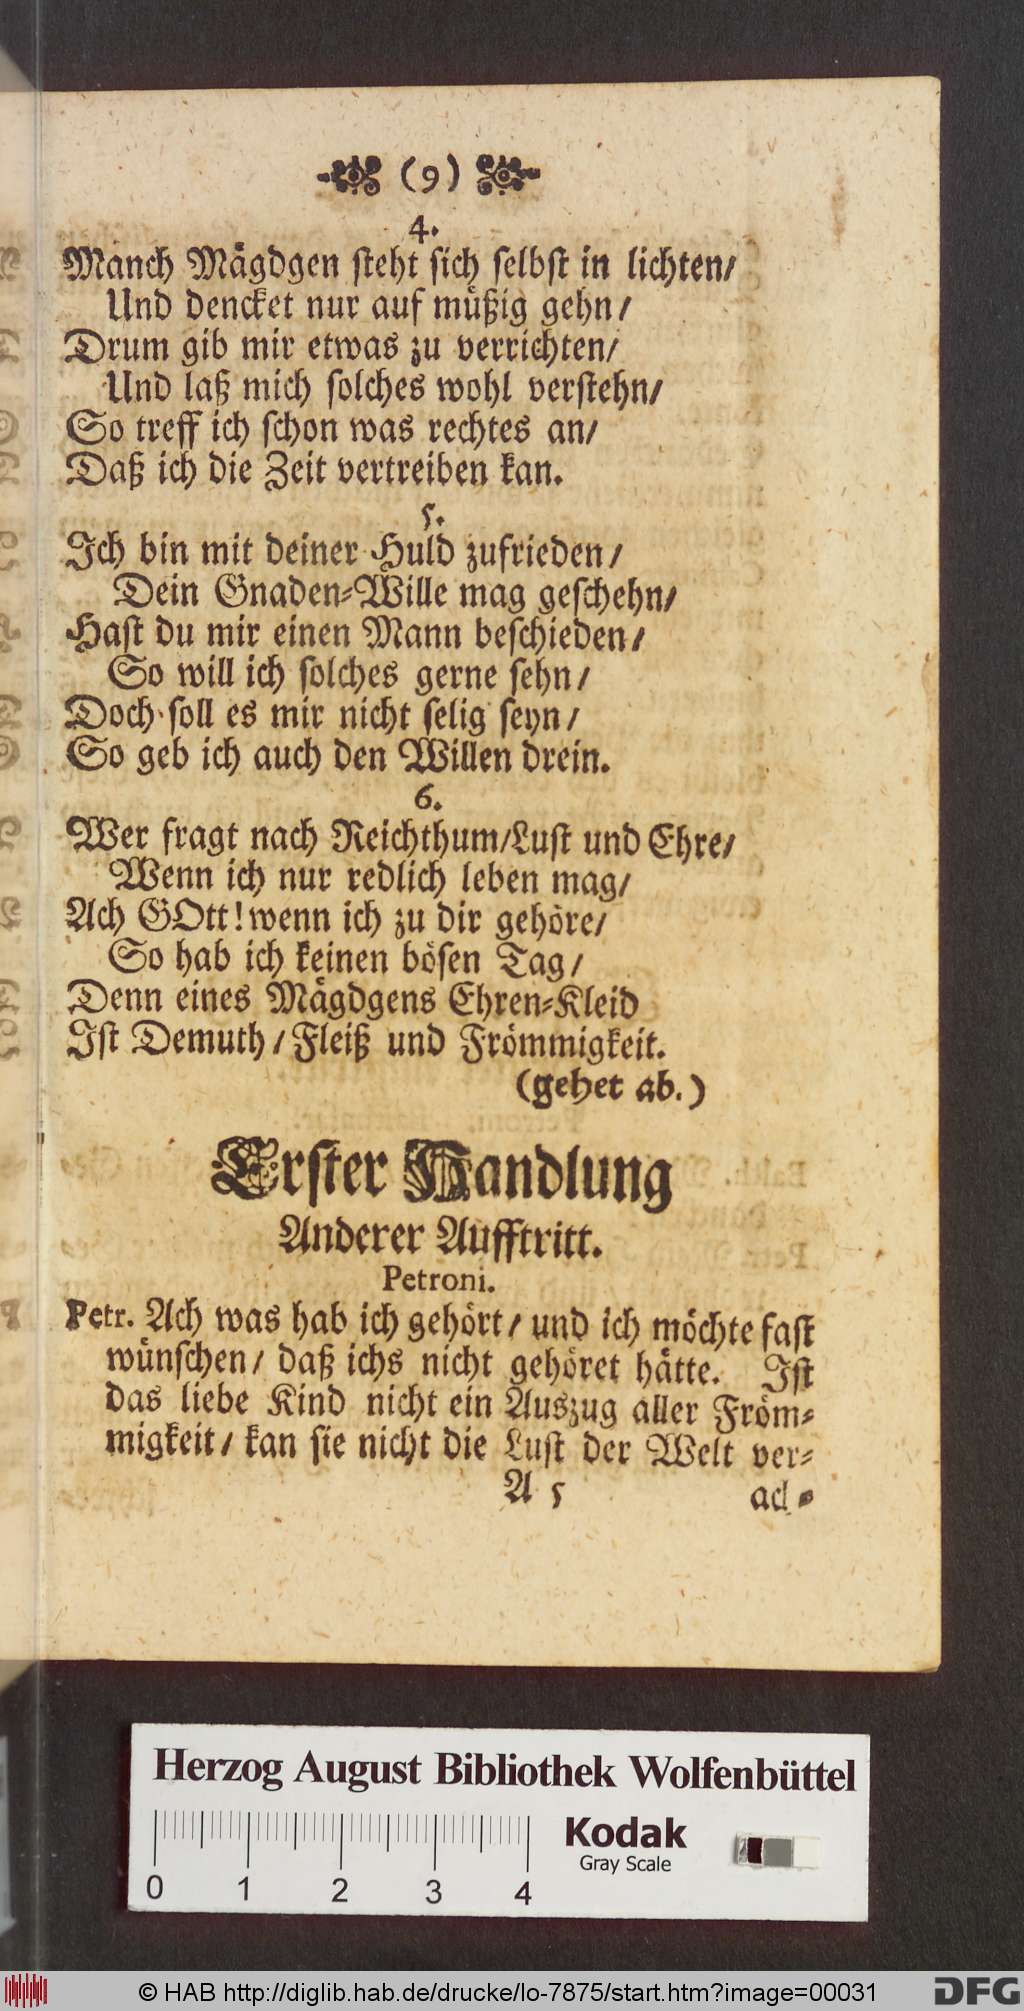 (9)
4.
Manch Mägdgen steht sich selbst in lichten/
Und dencket nur auf müßig gehn/
Drum gib mir etwas zu verrichten/
Und laß mich solches wohl verstehn/
So treff ich schon was rechtes an/
Daß ich die Zeit vertreiben kan.
5.
Ich bin mit deiner Huld zufrieden/
Dein Gnaden-Wille mag geschehn/
Hast du mir einen Mann beschieden/
So will ich solches gerne sehn/
Doch soll es mir nicht selig seyn/
So geb ich auch den Willen drein.
6.
Wer fragt nach Reichthum/Lust und Ehre/
Wenn ich nur redlich leben mag/
Ach GOtt! wenn ich zu dir gehöre/
So hab ich keinen bösen Tag/
Denn eines Mägdgens Ehren-Kleid
Ist Demuth/ Fleiß und Frömmigkeit.
(gehet ab.)
Erster Handlung
Anderer Aufftritt.
Petroni.
Petr. Ach was hab ich gehört/ und ich möchte fast
wünschen/ daß ichs nicht gehöret hätte. Ist
das liebe Kind nicht ein Auszug aller Fröm-
migkeit/ kan sie nicht die Lust der Welt ver-
A 5 ach-
Herzog August Bibliothek Wolfenbüttel
Kodak
Gray Scale
0 1 2 3 4
© HAB http://diglib.hab.de/drucke/lo-7875/start.htm?image=00031
DFG